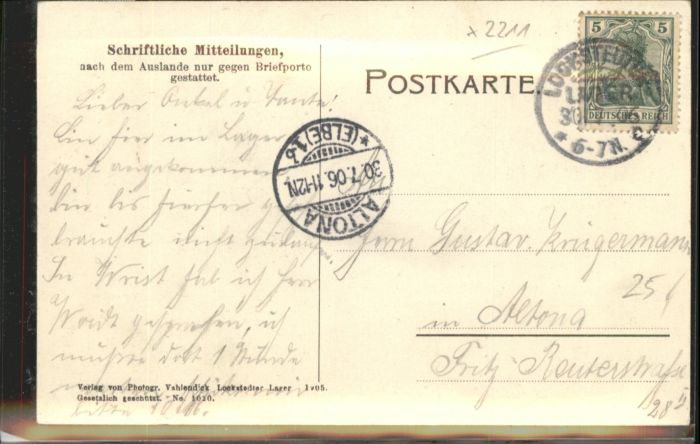 x 2211
Schriftliche Mitteilungen,
nach dem Auslande nur gegen Briefporto
gestattet.
POSTKARTE.
5 5
DEUTSCHES REICH
LOCKSTEDTER
LAGER
30. 06
* 6-7N.
Lieber Onkel u Tante!
Bin hier im Lager
gut angekommen
bin bis hierher
brauchte nicht
In Wrist hab ich Herr
Voidt gesprochen, ich
musste dort 1 Stunde
ALTONA
30.7.06.11-12N.
* (ELBE) 1 b
An
Herrn Gustav Krügermann
in Altona
Fritz Reuterstraße
25
28 II
Verlag von Photogr. Vahlendick Lockstedter Lager 1905.
Gesetzlich geschützt. No. 1020.